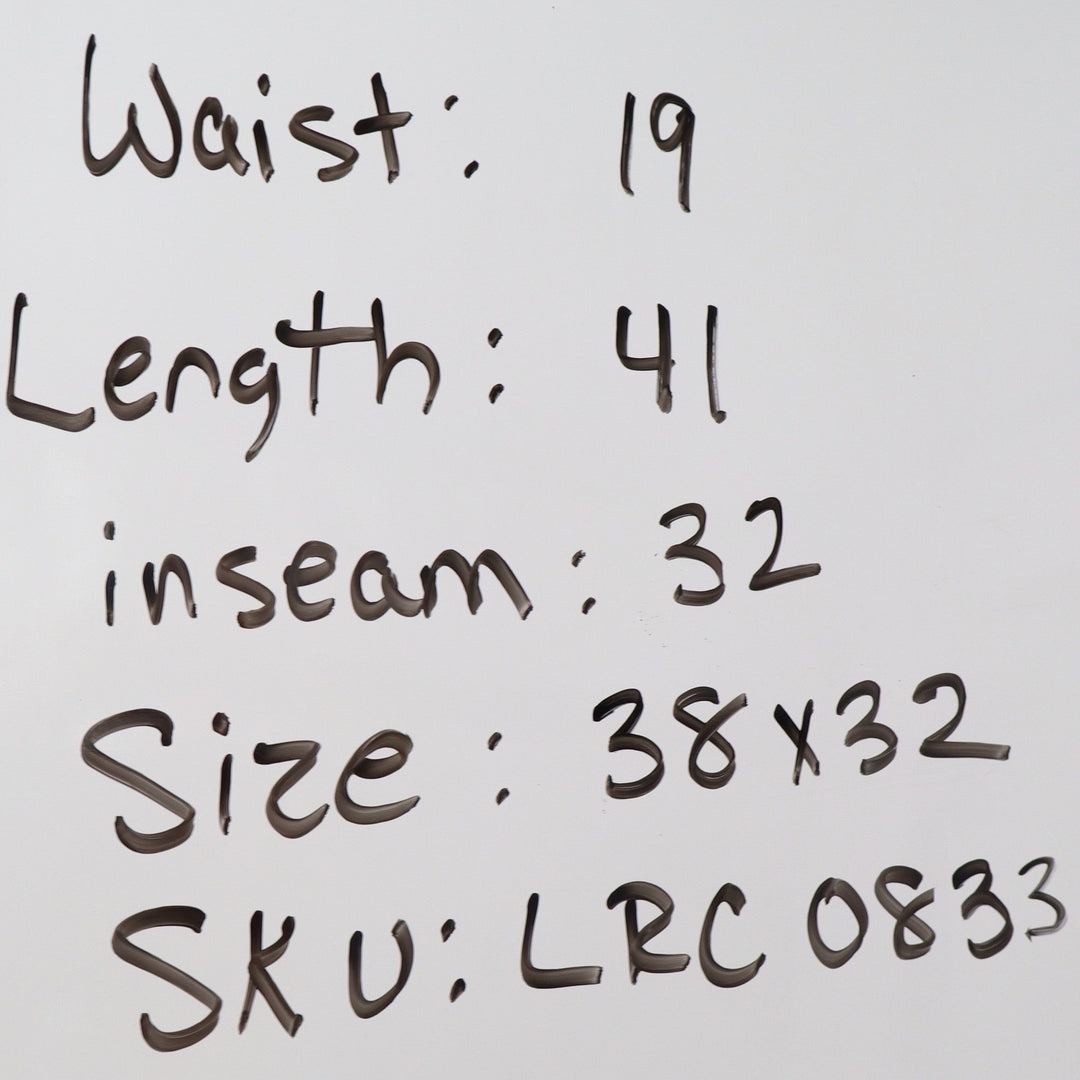 Waist: 19
Length: 41
inseam: 32
Size: 38x32
SKU: LRC 0833